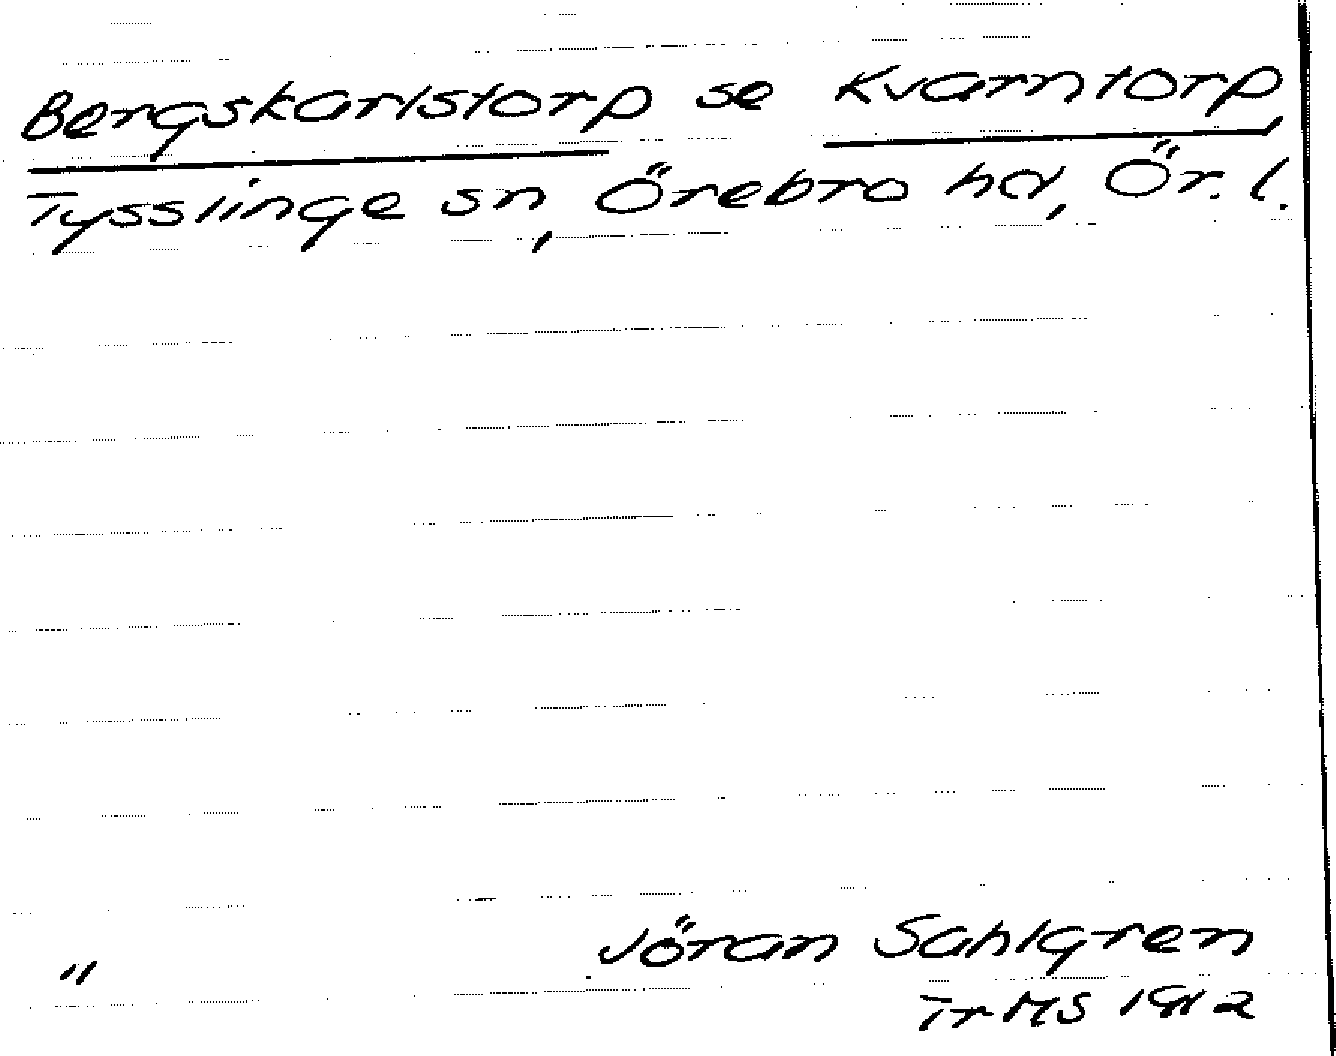 Bergskarlstorp se Kvarntorp,
Tysslinge sn, Örebro hd, Ör. l.
Jöran Sahlgren
" Tr MS 1912